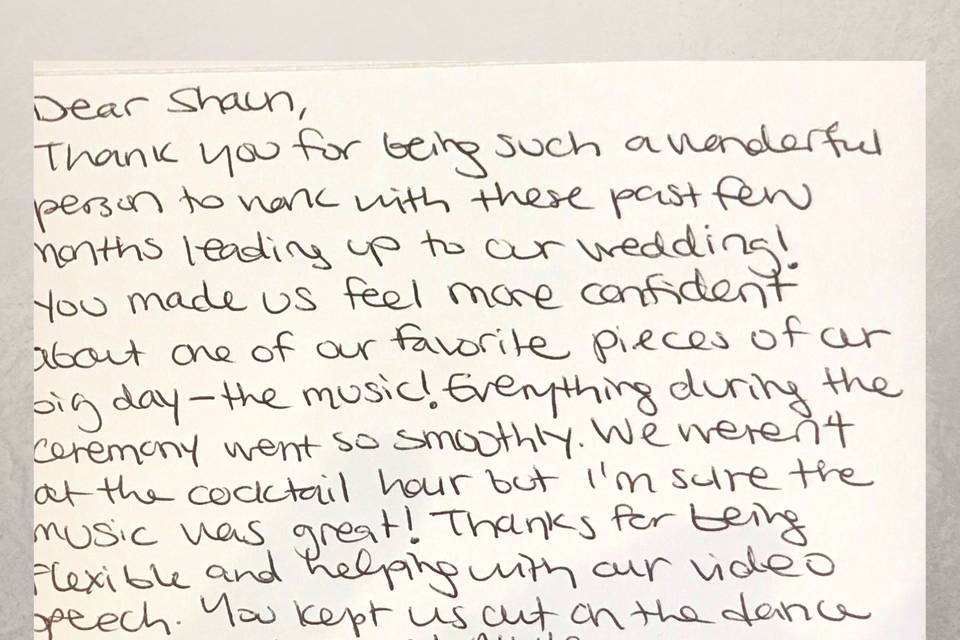 Dear Shaun,
Thank you for being such a wonderful
person to work with these past few
months leading up to our wedding!
You made us feel more confident
about one of our favorite pieces of our
big day - the music! Everything during the
ceremony went so smoothly. We weren't
at the cocktail hour but I'm sure the
music was great! Thanks for being
flexible and helping with our video
speech. You kept us out on the dance